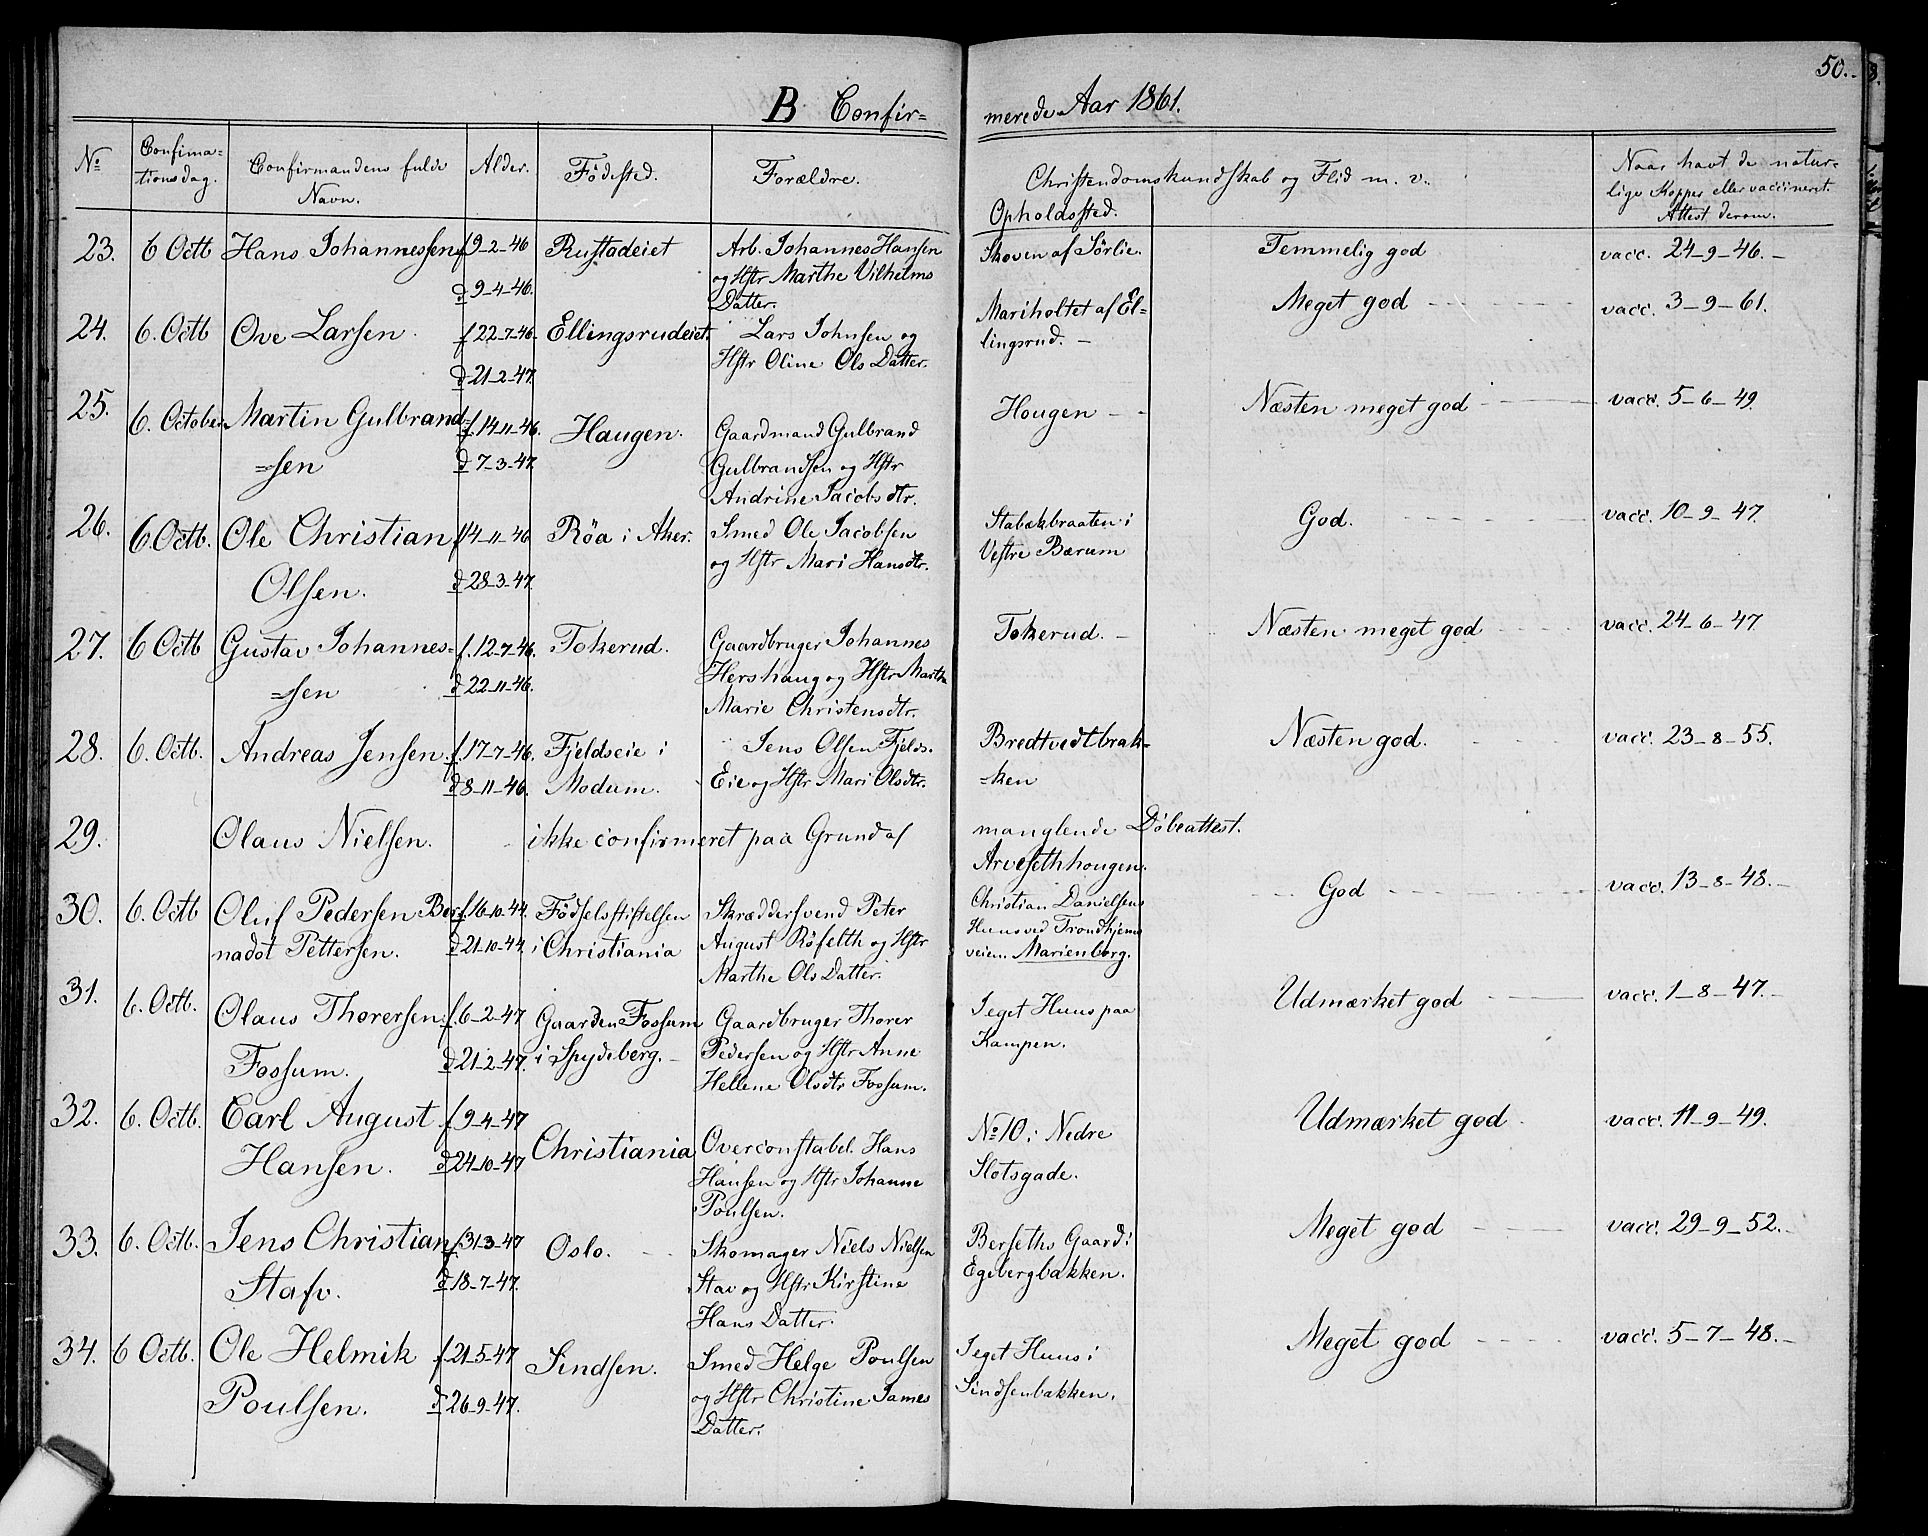 50.
B Confir=
merede Aar 1861.
No
Confima=
tionsdag.
Confirmandens fulde
Navn.
Alder.
Fødested.
Forældre.
Christendomskundskab og Flid m. v.
Opholdssted.
Naar havt de natur=
lige Kopper eller vaccineret.
Attest derom.
23. 6 Octb Hans Johannessen f 9-2-46 Rustadeiet Arb. Johannes Hansen Skoven af Sørlie. Temmelig god vacc. 24-9-46.-
d 9-4-46. og Hstr Marthe Vilhelms
Datter.
24. 6. Octb Ove Larsen. f 22-7-46. Ellingsrudeiet. Lars Johnsen og Mariholtet af El= Meget god vacc. 3-9-61.
d 21-2-47. Hstr Oline Ols Datter. lingsrud.-
25. 6. October Martin Gulbrand= f. 14-11-46. Haugen. Gaardmand Gulbrand Hougen - Næsten meget god vacc. 5-6-49.
=sen d 7-3-47. Gulbrandsen og Hstr
Andrine Jacobsdtr.
26. 6 Octb. Ole Christian f 14-11-46 Røa i Aker. Smed Ole Jacobsen Stabækbraaten i God. vacc. 10-9-47.
Olsen. d 28-3-47. og Hstr Mari Hansdtr. Vestre Bærum
27. 6 Octb Gustav Johannes= f. 12-7-46. Tokerud. Gaardbruger Johannes Tokerud.- Næsten meget god vacc. 24-6-47
=sen d 22-11-46. Hershaug og Hstr Marthe
Marie Christensdtr.
28. 6. Octb. Andreas Jensen. f. 17-7-46. Fjeldseie i Jens Olsen Fjelds= Bredtvedtbak= Næsten god. vacc. 23-8-55.
d 8-11-46. Modum. Eie og Hstr Mari Olsdtr. =ken
29. Olaus Nielsen. ikke confirmeret paa Grund af manglende Døbeattest.
Arvesethhougen.
30. 6. Octb Oluf Pedersen Ber= f. 16-10-44. Fødselsstiftelsen Skræddersvend Peter Christian Danielsens God vacc. 13-8-48.-
nadot Pettersen. d 21-10-44. i Christiania August Røfelth og Hstr Huus ved Trondhjems
Marthe Ols Datter. veien. Marienborg.
31. 6. Octb. Olaus Thorersen f. 6-2-47 Gaarden Fossum Gaardbruger Thorer I eget Huus paa Udmærket god vacc. 1-8-47.-
Fossum. d 21-2-47. i Spydeberg.- Pedersen og Hstr Anne Kampen.
Hellene Olsdtr Fossum.
32. 6. Octb. Carl August f 9-4-47 Christiania Overconstabel. Hans No 10 i Nedre Udmærket god vacc. 11-9-49.
Hansen. d 24-10-47 Hansen og Hstr Johanne Slotsgade.
Poulsen.
33. 6. Octb. Jens Christian f. 31-3-47 Oslo. Skomager Niels Nielsen Berseths Gaard i Meget god vacc. 29-9-52.-
Stafv. d 18-7-47. Stav og Hstr Kirstine Egebergbakken.
Hans Datter.
34. 6 Octb. Ole Helmik f. 21-5-47 Sindsen. Smed Helge Poulsen I eget Huus i Meget god vacc. 5-7-48.-
Poulsen. d 26-9-47. og Hstr Christine James Sindsenbakken.
Datter.